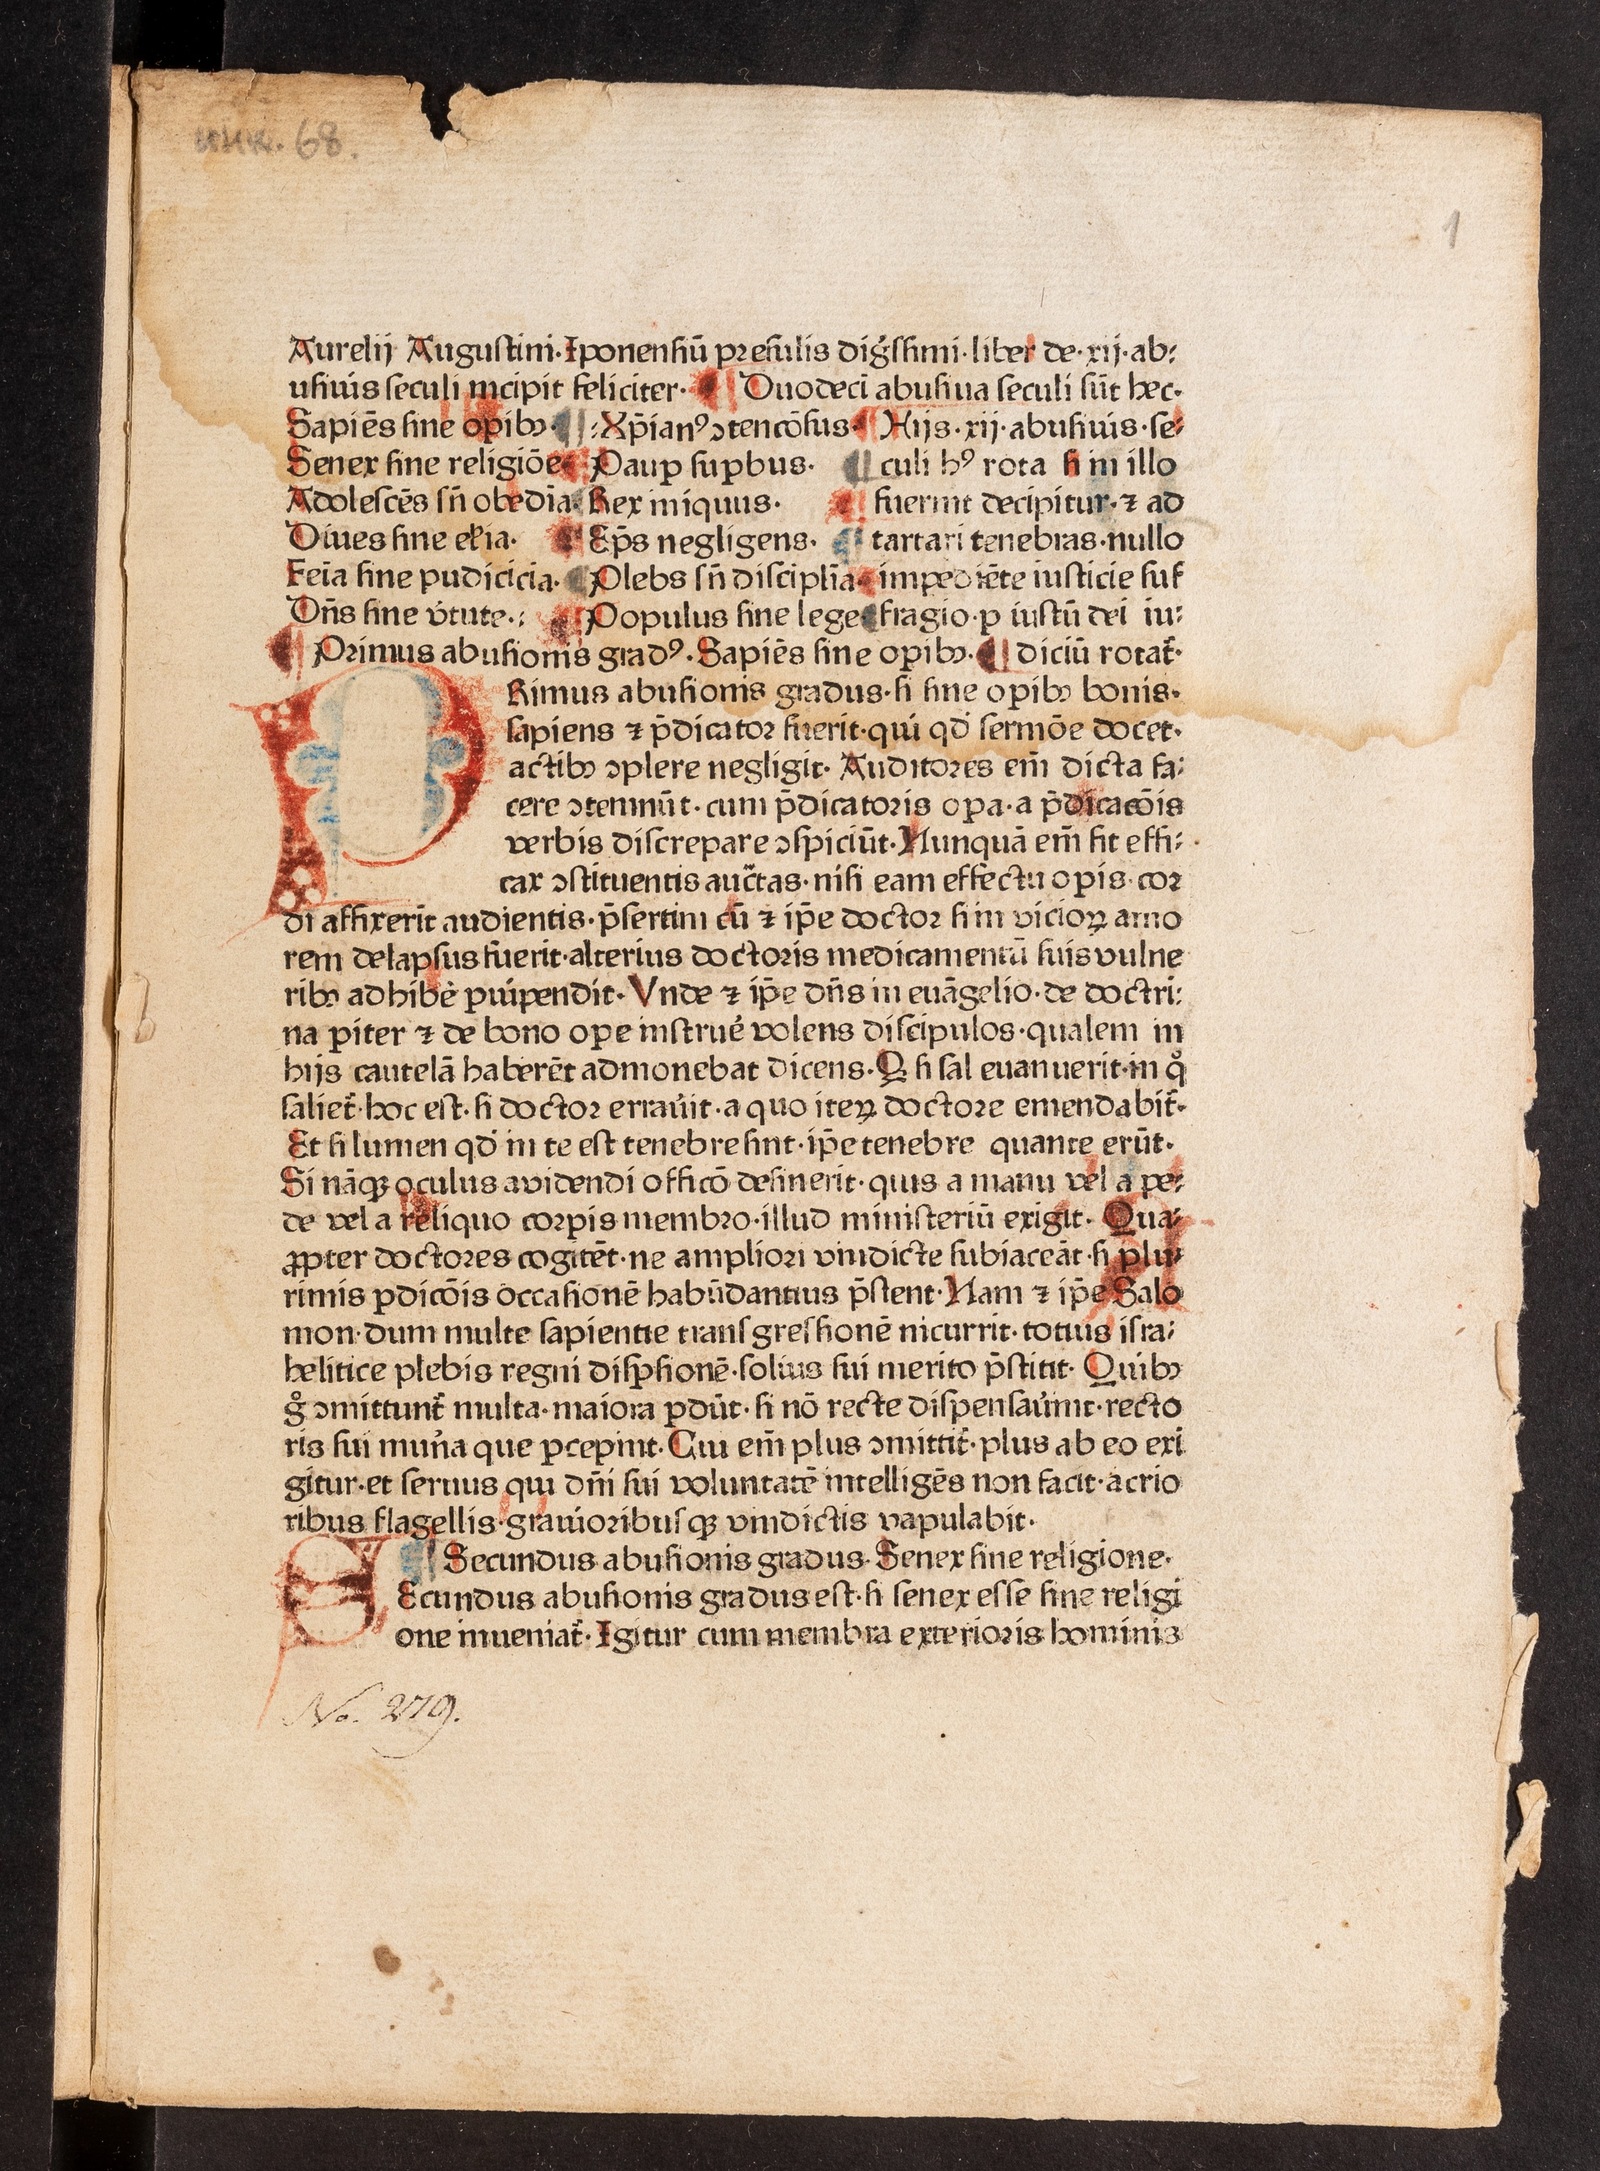 инк. 68.
1
Aurelij Augustini·Iponensiū presulis dig̃ssimi·liber de·xij·ab⸗
usiuis seculi incipit feliciter· ¶ Duodeci abusiua seculi sūt hec·
Sapiēs sine opibꝫ· ¶ Xp̄ianꝰ ↄtencōsus· ¶ Hijs·xij·abusiuis·se⸗
Senex sine religiōe ¶ Paup supbus· ¶ culi hꝰ rota si in illo
Adolescēs sn̄ obedīa· Rex iniquus· ¶ fuerint decipitur·⁊ ad
Diues sine el̄ia· ¶ Ep̄s negligens· ¶ tartari tenebras·nullo
Feīa sine pudicicia· ¶ Plebs sn̄ disciplīa ¶ impediēte iusticie suf
Dn̄s sine v̓tute· ¶ Populus sine lege ¶ fragio·p iustū dei iu⸗
¶ Primus abusionis gradꝰ·Sapiēs sine opibꝫ· ¶ diciū rotat̄·
PRimus abusionis gradus·si sine opibꝫ bonis·
sapiens ⁊ p̄dicator fuerit·qui qd̓ sermōe docet·
actibꝫ ↄplere negligit· Auditores em̄ dicta fa⸗
cere ↄtemnūt·cum p̄dicatoris opa·a p̄dicacōis
verbis discrepare ↄspiciūt·Nunquā em̄ fit effi⸗
cax ↄstituentis auc̄tas·nisi eam effectu opis·cor
di affixerīt audientis·p̄sertim cū ⁊ ip̄e doctor si in vicioꝝ amo
rem delapsus fuerit·alterius doctoris medicamentū suis vulne
ribꝫ adhibe̓ puipendit· Vnde ⁊ ip̄e dn̄s in euāgelio·de doctri⸗
na piter ⁊ de bono ope instrue̓ volens discipulos·qualem in
hijs cautelā haberēt admonebat dicens·Q̨ si sal euanuerit·in qͦ
saliet̄·hoc est·si doctor errau̓it·a quo iteꝝ doctore emendabit̄·
Et si lumen qd̓ in te est tenebre sint·ip̄e tenebre quante erūt·
Si nāqꝫ oculus avidendi officō desinerit·quis a manu vel a pe⸗
de vel a reliquo corpis membro·illud ministeriū exigit· Qua⸗
ꝓpter doctores cogitēt·ne ampliori vindicte subiaceāt·si plu⸗
rimis pdicōis occasionē habūdantius p̄stent·Nam ⁊ ip̄e Salo
mon·dum multe sapientie transgressionē nicurrit·totius isra⸗
helitice plebis regni dispsionē·solius sui merito p̄stitit· Quibꝫ
gͦ ↄmittunt̄ multa·maiora pdūt·si nō recte dispensau̓int·recto
ris sui mun̓a que pcepint·Cui em̄ plus ↄmittit̄·plus ab eo exi
gitur·et seruus qui dn̄i sui voluntatē intelligēs non facit·acrio
ribus flagellis·grauioribusqꝫ vindictis vapulabit·
¶ Secundus abusionis gradus·Senex sine religione·
SEcundus abusionis gradus est·si senex esse sine religi
one inueniat̄·Igitur cum membra exterioris hominis
No. 279.